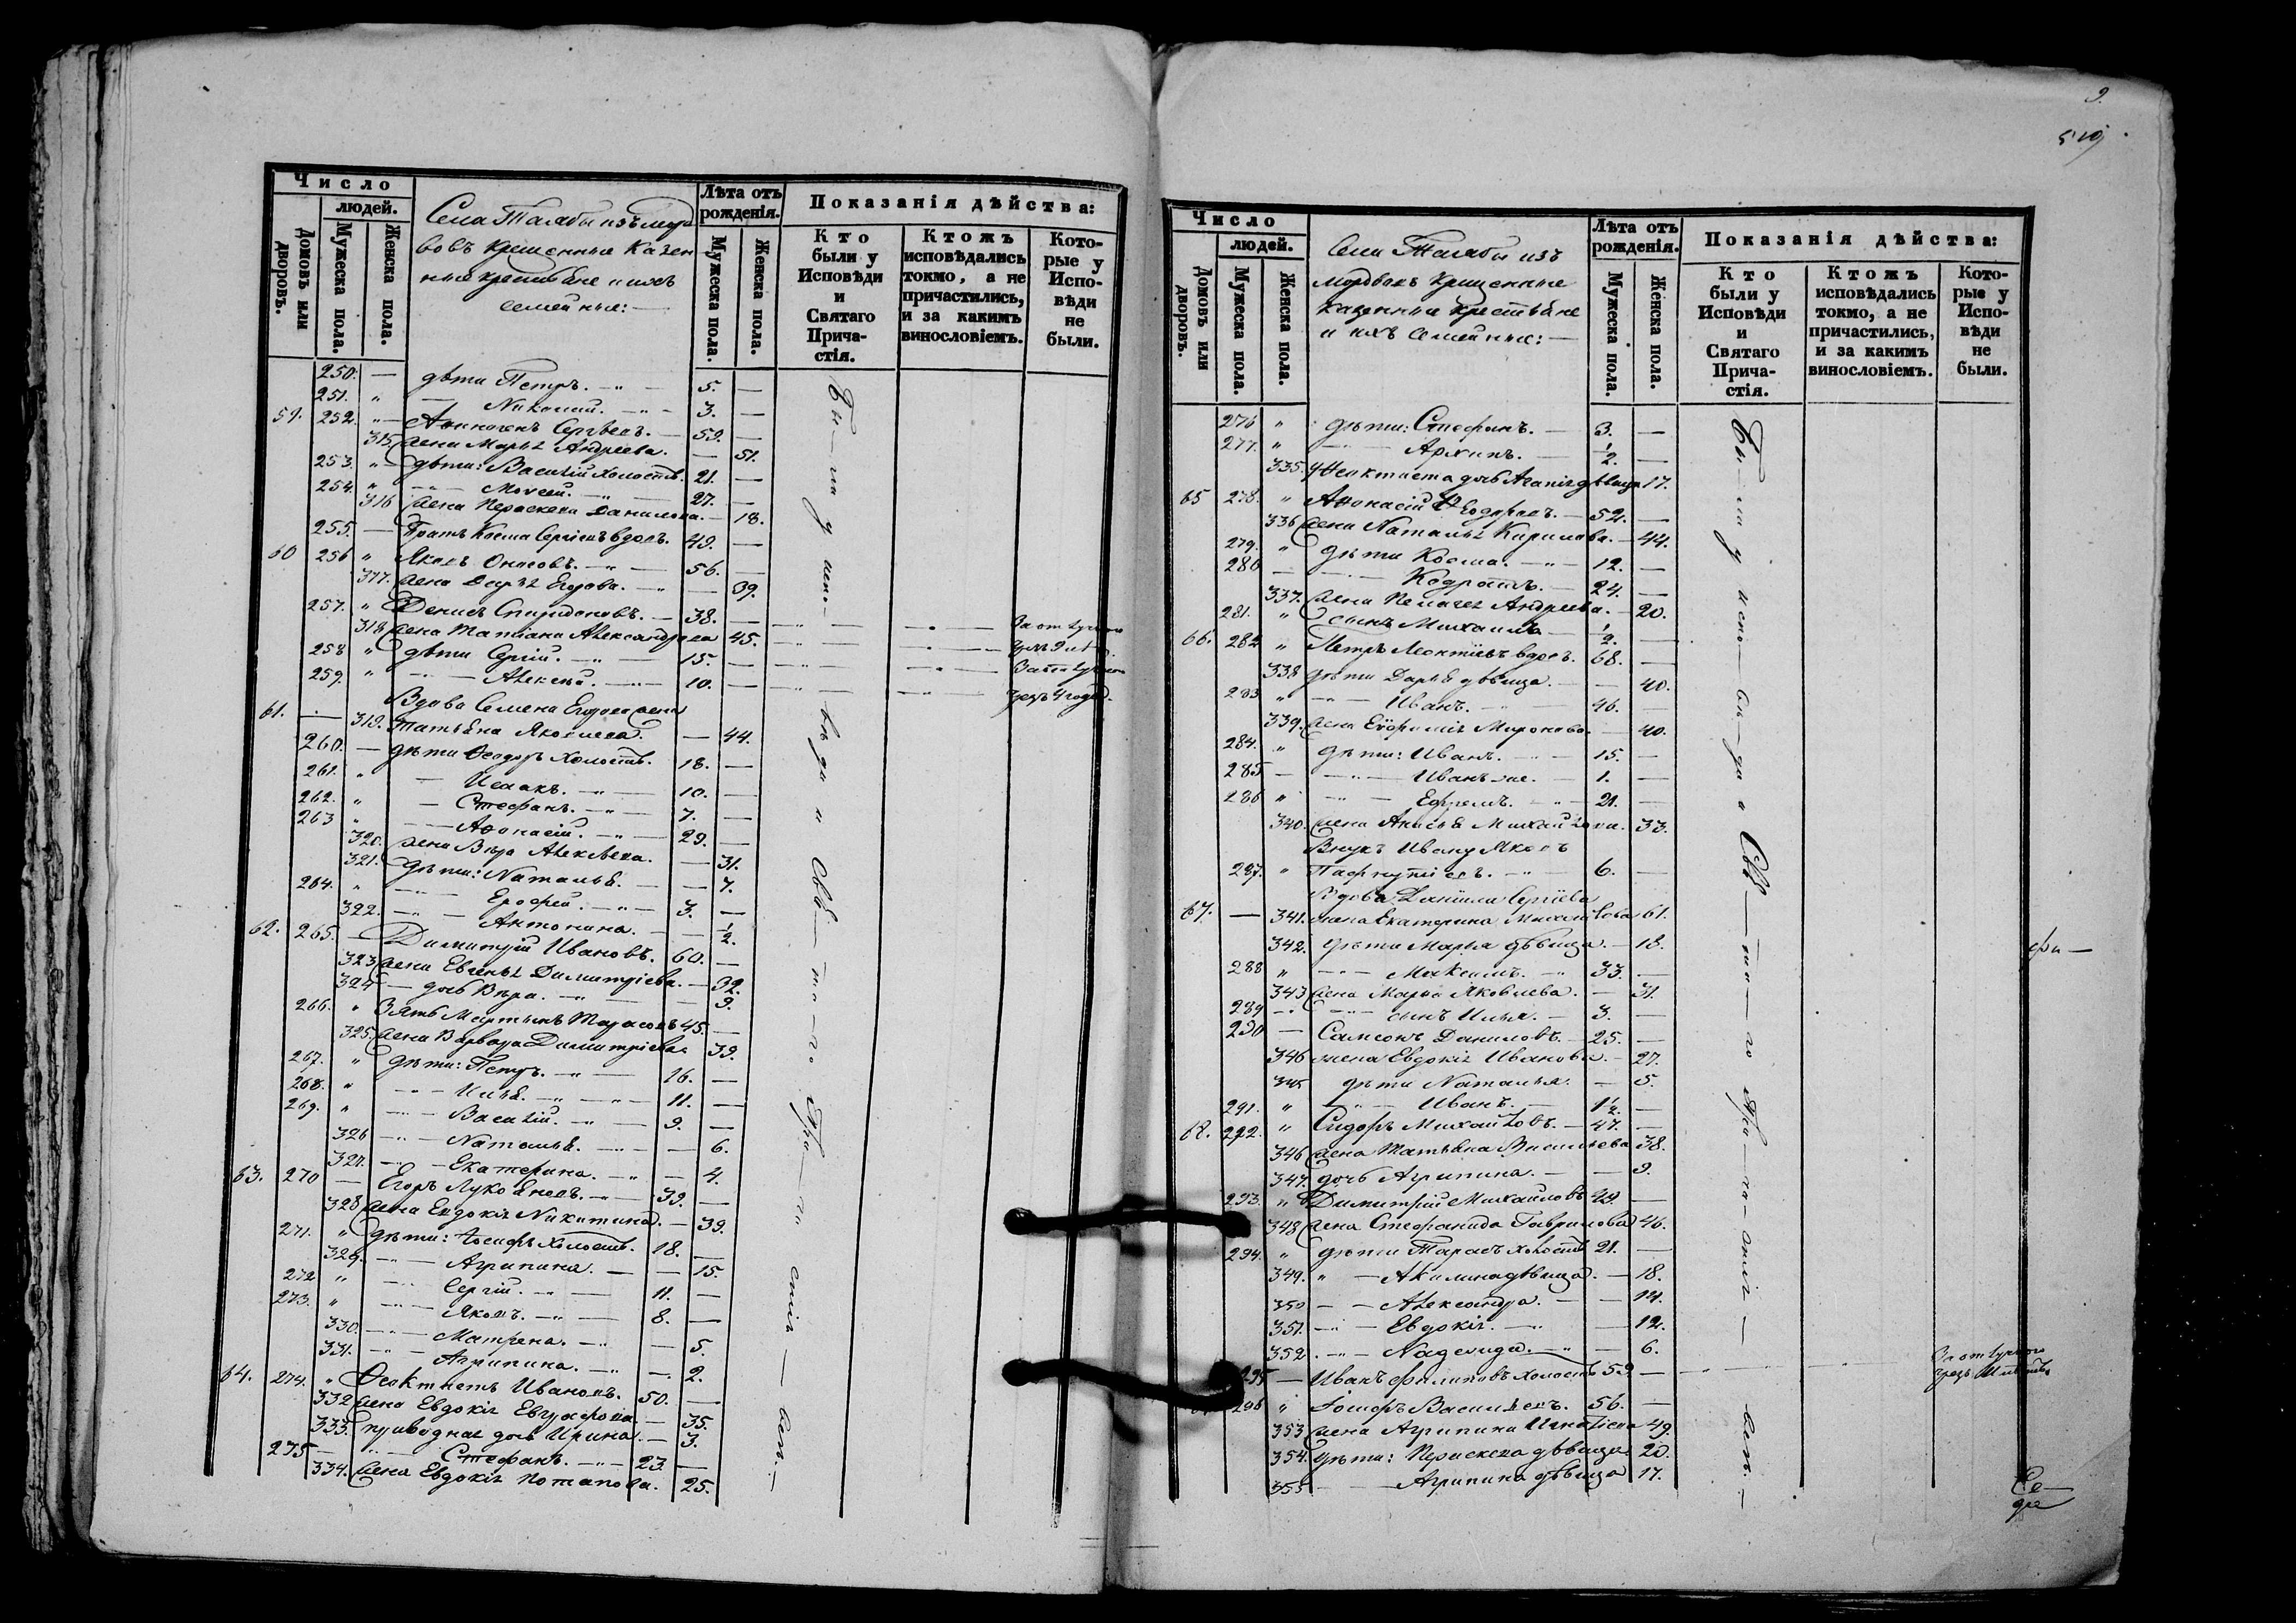 Число
людей.
Домовъ или дворовъ.
Мужеска пола.
Женска пола.
Села
вовъ крещенные Казен
ные крестьяне и ихъ
семейные: —
Лѣта отъ рожденія.
Мужеска пола.
Женска пола.
Показанія дѣйства:
Кто были у Исповѣди и Святаго Прича-стія.
Ктожъ исповѣдались токмо, а не причастились, и за какимъ винословіемъ.
Кото-рые у Испо-вѣди не были.
250. — дѣти Петръ. — 5. —
251. " — Николай. — 3. —
59. 252. " — Сергѣевъ. — 59. —
315. жена Марья Андреева. — 51.
253. " — дѣти: Василій холостъ. 21. —
254. " — Моисей. — 27. —
316 жена Параскева Данилова. — 18.
255. — Братъ Косма Сергіевъ вдовъ. 49. —
60 256 " Яковъ — 56. —
317. жена Дарья Егорова. — 39.
257. " Денисъ Спиридоновъ. — 38. —
318 жена Татіана Александрова 45.
258 " дѣти Сергій. — 15. —
259. " — Алексѣй. — 10. —
Вдова Семена Егорова жена
61. — 319. Татьяна Яковлева. — 44.
260. — дѣти Ѳеодоръ холостъ. 18. —
261. " — Исаакъ. — 10. —
262. " — Стефанъ. — 7. —
263 " — Аѳонасій. — 29. —
320. жена Вѣра Алексѣева. — 31.
321. дѣти: Наталья. — 7.
264. " — Ерофей. — 3. —
322. — Антонина. — 1/2.
62. 265. — Димитрій Ивановъ. 60. —
323 жена Евгенья Димитріева. — 32.
324 — дочь Вѣра. — 9.
266. " Зять Мартынъ Тарасовъ 45. —
325. жена Варвара Димитріева 39.
267. " дѣти: Петръ. — 16. —
268. " — Илья. — 11. —
269. " — Василій. — 9. —
326 — Наталья. — 6.
327. — Екатерина. — 4.
63. 270 — Егоръ Лукояновъ. — 39. —
328 жена Евдокія Никитина. — 39.
271. " дѣти: Іосифъ холостъ. 18. —
329. — Агрипина. — 15.
272 " — Сергій. — 11. —
273. " — Яковъ. — 8. —
330. — Матрена. — 5.
331. — Агрипина. — 2.
64. 274. " Ѳеоктистъ Ивановъ. 50. —
332 жена Евдокія Евграфова. — 35.
333. приводная дочь Ирина. — 3.
275 — Стефанъ. — 23. —
334. жена Евдокія Потапова. 25.
Бы — ли у испо — вѣди и Свя — та — го При — ча — стія — всѣ. —
9.
519
Число
людей.
Домовъ или дворовъ.
Мужеска пола.
Женска пола.
Села изъ
мордвовъ крещенные
казенные крестьяне
и ихъ семейные: —
Лѣта отъ рожденія.
Мужеска пола.
Женска пола.
Показанія дѣйства:
Кто были у Исповѣди и Святаго Прича-стія.
Ктожъ исповѣдались токмо, а не причастились, и за какимъ винословіемъ.
Кото-рые у Испо-вѣди не были.
276 " дѣти: Стефанъ. — 3. —
277. " — Архипъ. — 1/2. —
335. у Ѳеоктиста дочь дѣвица 17.
65 278. " Аѳонасій Ѳедоровъ. — 52. —
336 жена Наталья Кирилова. — 44.
279. " дѣти Косма. — 12. —
280 — Кодратъ. — 24. —
337. жена Пелагея Андреева. — 20.
281. " сынъ Михаилъ — 1/2. —
66. 282 " Петръ Леонтіевъ вдовъ. 68. —
338 дѣти Дарья дѣвица. — 40.
283 " — Иванъ. — 46. —
339. жена Евфимія Миронова. — 40.
284. " дѣти: Иванъ. — 15. —
285 — Иванъ же. — 1. —
286 " — Ефремъ. — 21. —
340. жена Анисья Михайлова. 33.
Внукъ Ивану Яковъ
287. " — 6. —
Вдова Даніила Сергіева
67. — 341. жена Екатерина Михайлова 61.
342. дѣти Марья дѣвица. — 18.
288 " — Максимъ. — 33. —
343 жена Марья Яковлева. — 31.
289 — сынъ Илья. — 3. —
290 — Самсонъ Даниловъ. — 25. —
346 жена Евдокія Иванова. — 27.
345 дѣти Наталья. — 5.
291. " — Иванъ. — 1 1/2. —
68. 292. " Сидоръ Михайловъ. — 47. —
346 жена Татьяна Васильева 38.
347. дочь Агрипина. — 9.
293. " Димитрій Михайловъ 49. —
348 жена Стефанида Гаврилова 46.
294. " дѣти Тарасъ холостъ 21. —
349. " — Акилина дѣвица. — 18.
350 — Александра. — 14.
351. — Евдокія. — 12.
352. — Надежда. — 6.
295 — Иванъ Филиповъ холостъ 59 —
296 " Васильевъ. 56. —
353 жена Агрипина Игнатіева 49.
354. дѣти: Параскева дѣвица 20.
355 — Агрипина дѣвица 17.
Бы — ли у испо — вѣ — ди и Свя — та — го При — ча — стія — всѣ. —